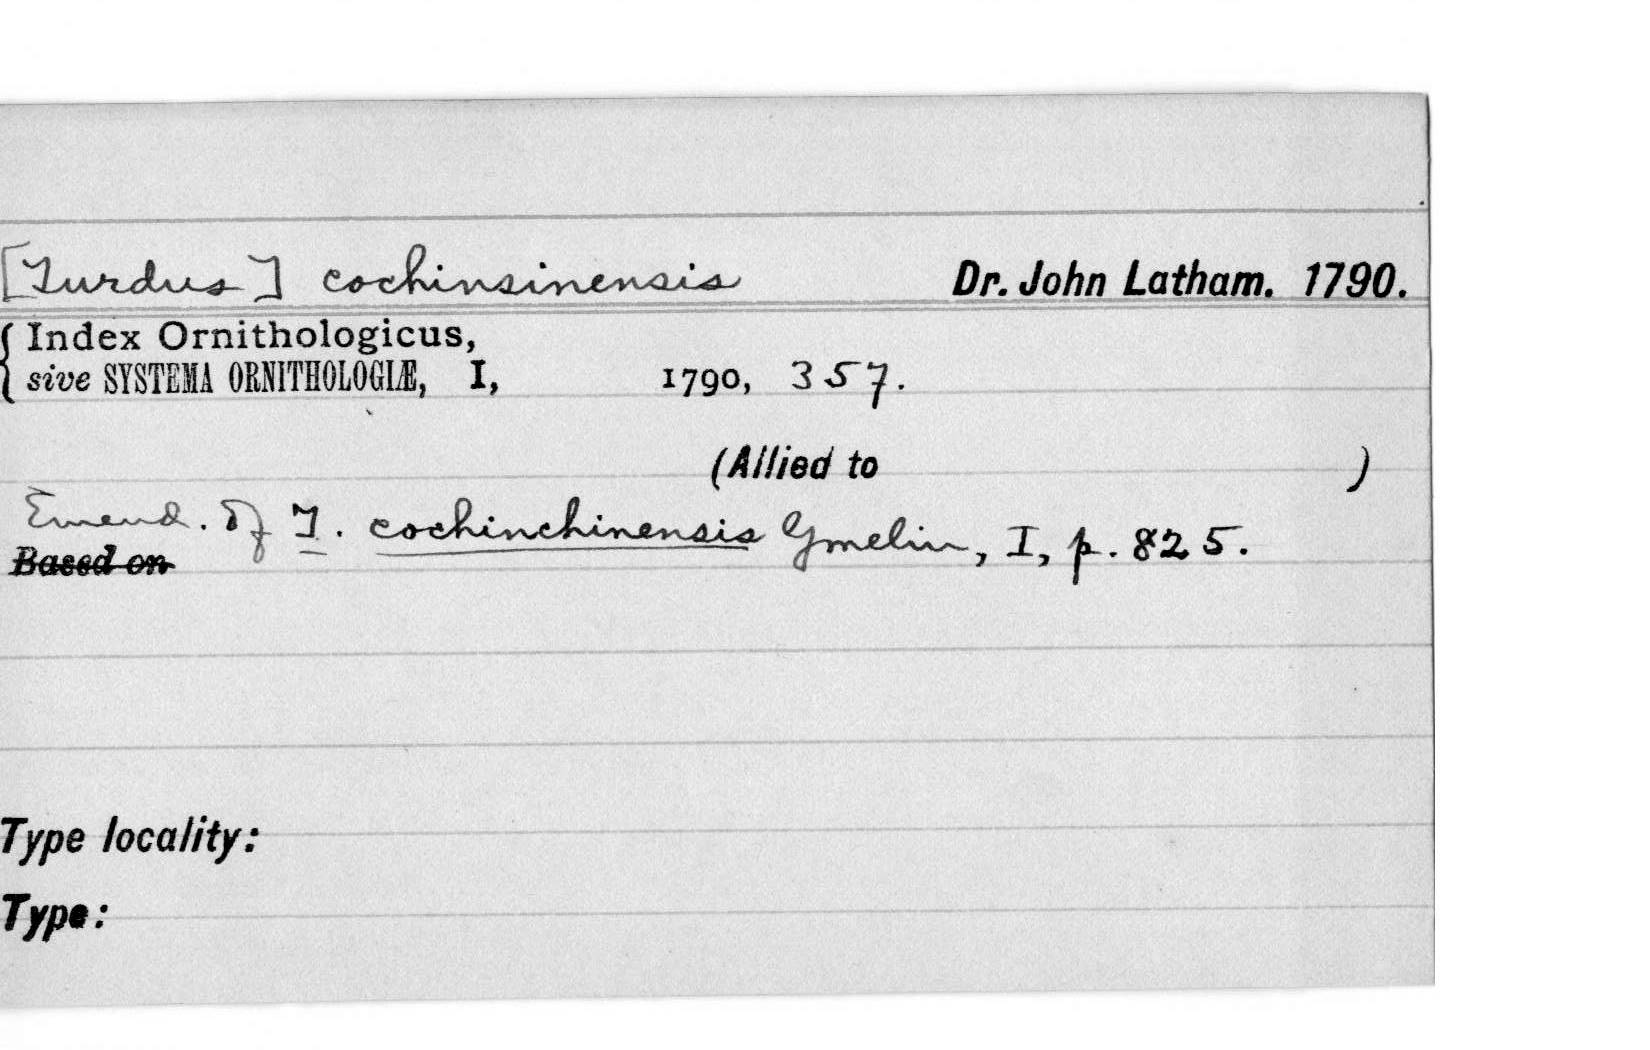 [Turdus] cochinsinensis Dr. John Latham. 1790.
{ Index Ornithologicus,
sive SYSTEMA ORNITHOLOGIÆ, I, 1790, 357.
(Allied to )
Emend. of T. cochinchinensis Gmelin, I, p. 825.
Based on
Type locality:
Type: